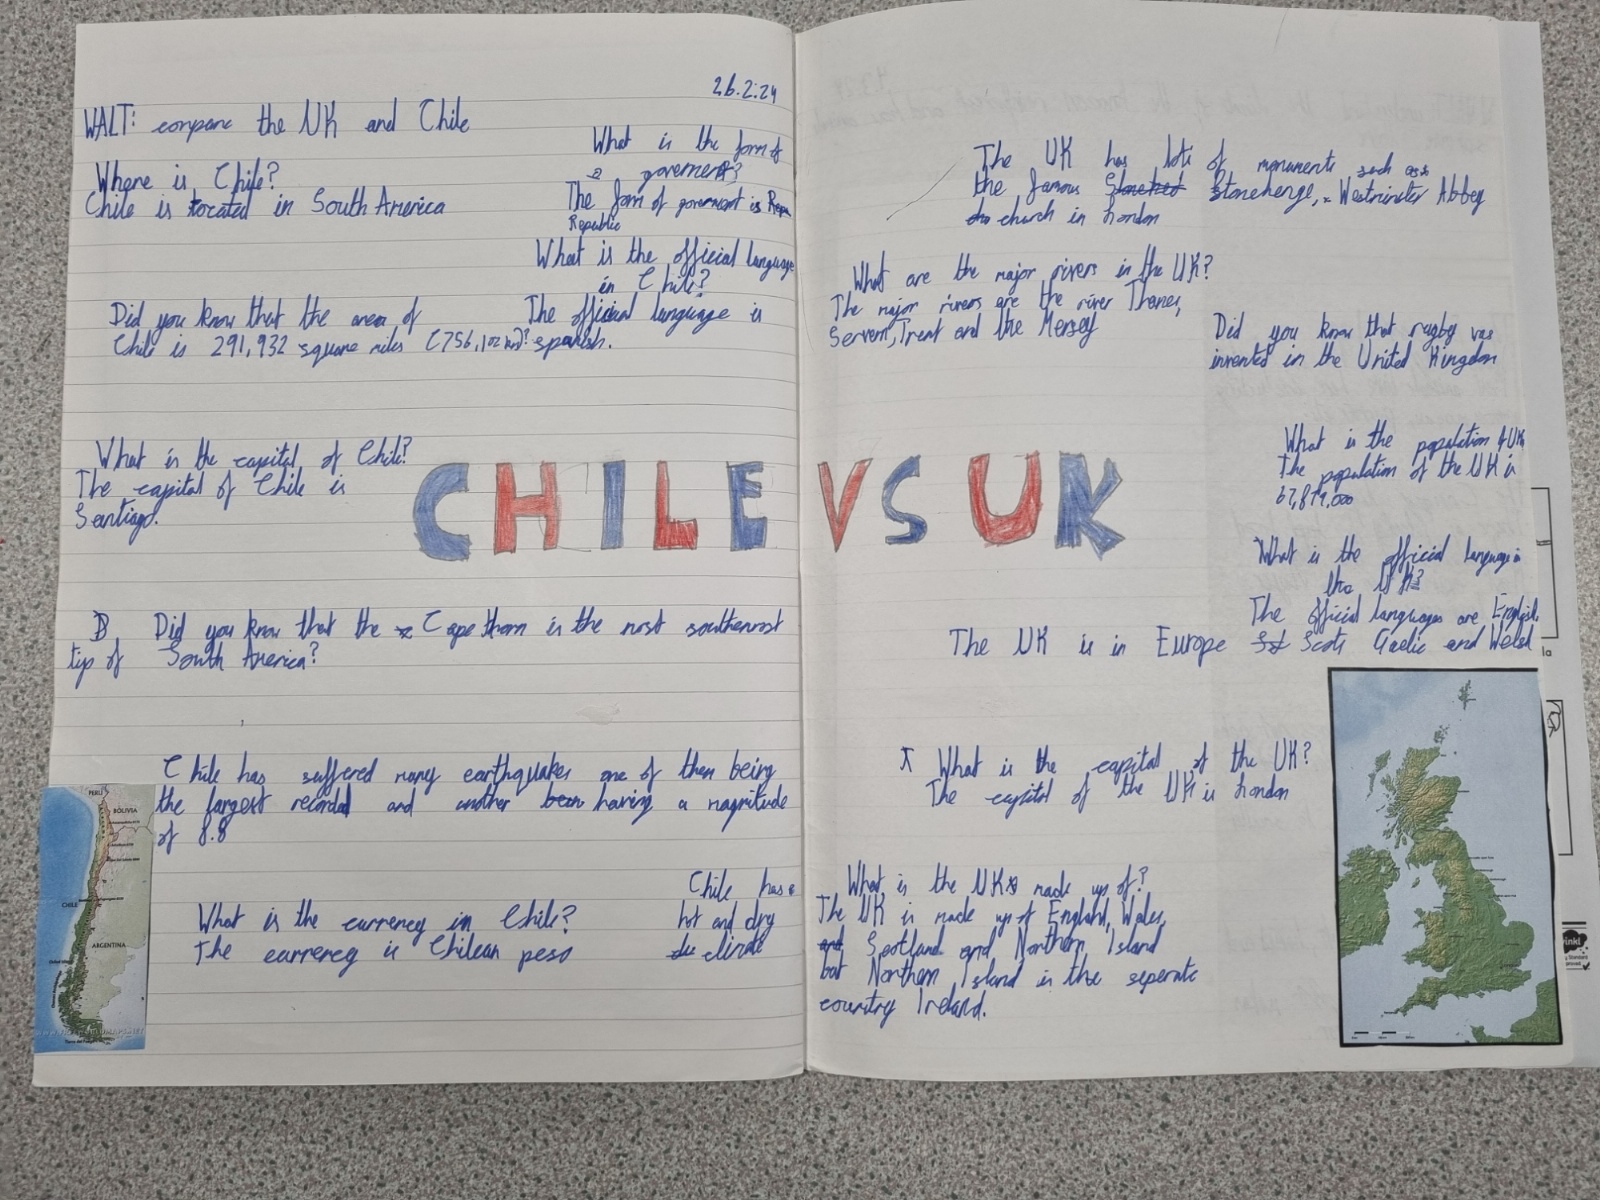 26.2.24
WALT: compare the UK and Chile
Where is Chile?
Chile is located in South America
What is the form of
a government?
The form of government is Repu
Republic
What is the official language
in Chile?
The official language is
spanish.
Did you know that the area of
Chile is 291,932 square miles (756,102 km)?
What is the capital of Chile?
The capital of Chile is
Santiago.
CHILE VS UK
D Did you know that the Cape Horn is the most southernmost
tip of South America?
Chile has suffered many earthquakes one of them being
the largest recorded and another been having a magnitude
of 8.8
What is the currency in Chile?
The currency is Chilean peso
Chile has a
hot and dry
climate
PERU
BOLIVIA
CHILE
ARGENTINA
The UK has lots of monuments such as
the famous Stonehenge, Westminster Abbey
church in London
What are the major rivers in the UK?
The major rivers are the river Thames,
Servern, Trent and the Mersey
Did you know that rugby was
invented in the United Kingdon
What is the population of UK
The population of the UK is
67,879,000
What is the official language in
the UK?
The official languages are English,
Scots Gaelic and Welsh
The UK is in Europe
What is the capital of the UK?
The capital of the UK is London
What is the UK made up of?
The UK is made up of England, Wales,
and Scotland and Northern Island
but Northern Island is the seperate
country Ireland.